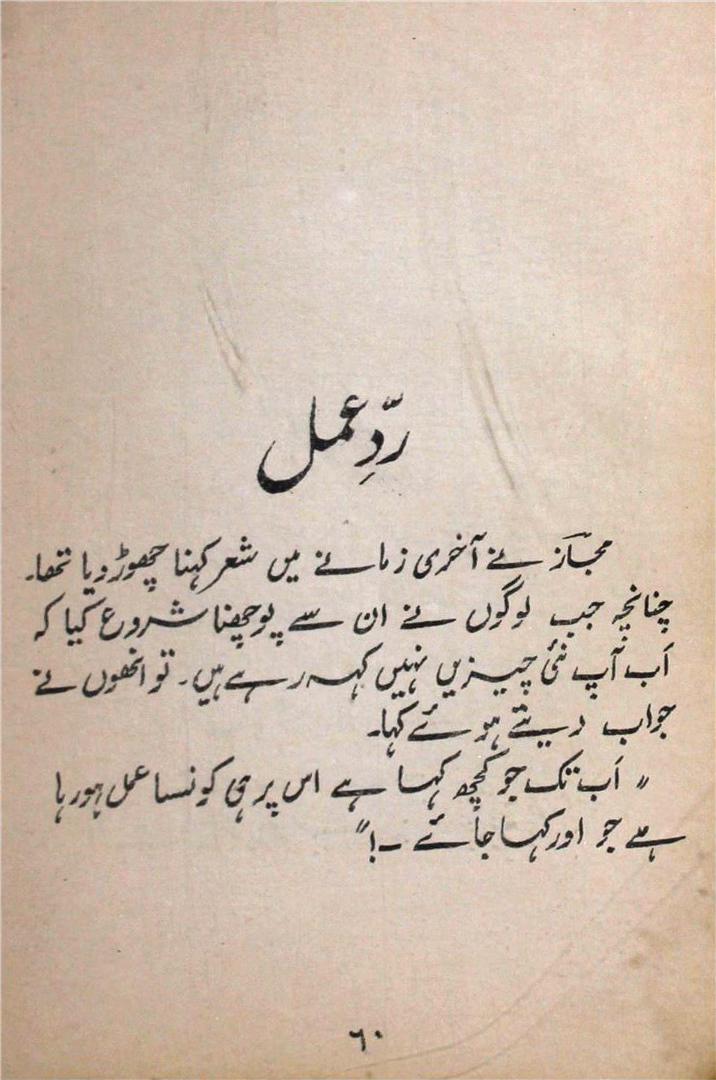 ردِّ عمل
مجاز نے آخری زمانے میں شعر کہنا چھوڑ دیا تھا۔
چنانچہ جب لوگوں نے ان سے پوچھنا شروع کیا کہ
اَب آپ نئی چیزیں نہیں کہہ رہے ہیں۔ تو انھوں نے
جواب دیتے ہوئے کہا۔
"اَب تک جو کچھ کہا ہے اس پر ہی کونسا عمل ہو رہا
ہے جو اور کہا جائے ۔!"
۶۰